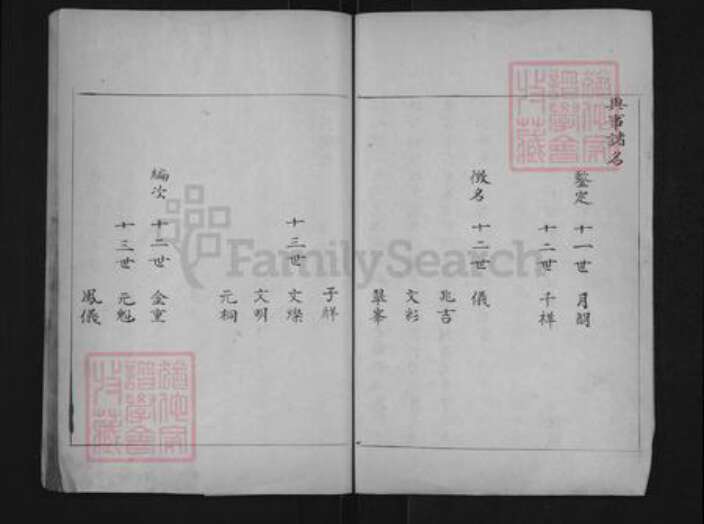 與事諸名
鑒定 十一世 月朗
十二世 千祥
徵名 十二世 儀
兆吉
文彩
翠峯
子祥
十三世 文燦
文明
元桐
編次 十二世 金重
十三世 元魁
鳳儀
FamilySearch